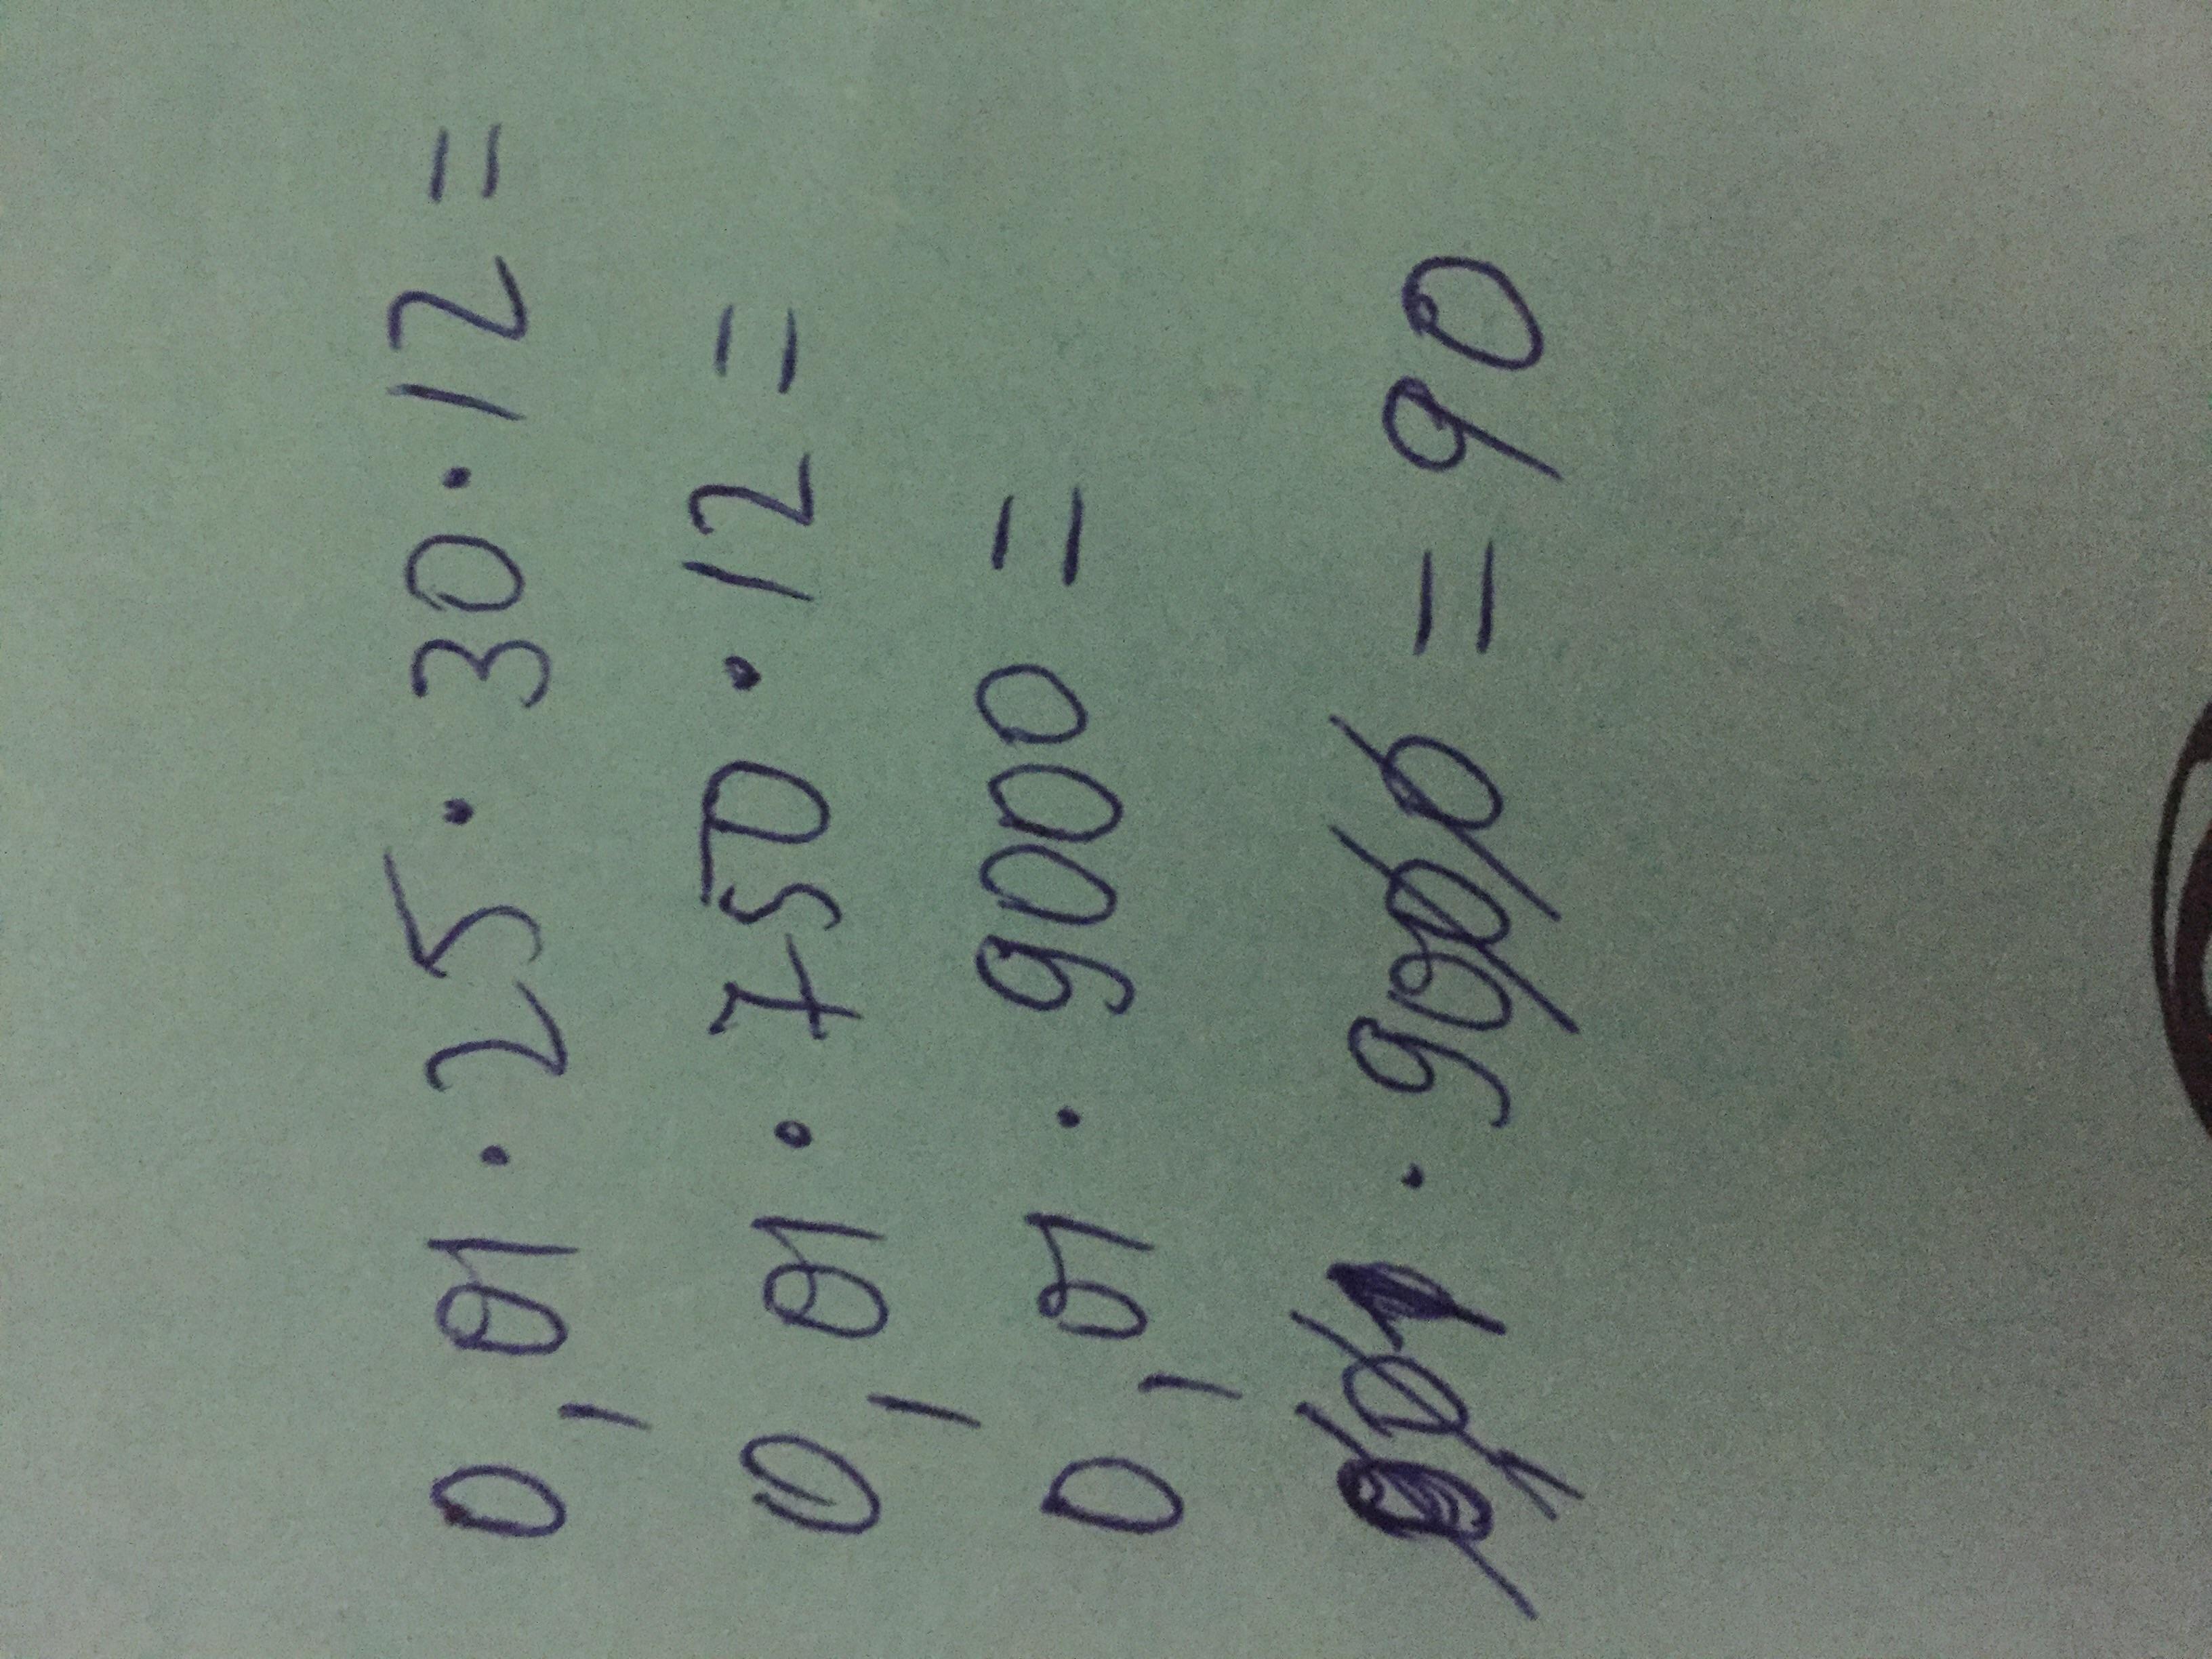 0,01·25·30·12=
0,01·750·12=
0,01·9000=
0,01·9000=90